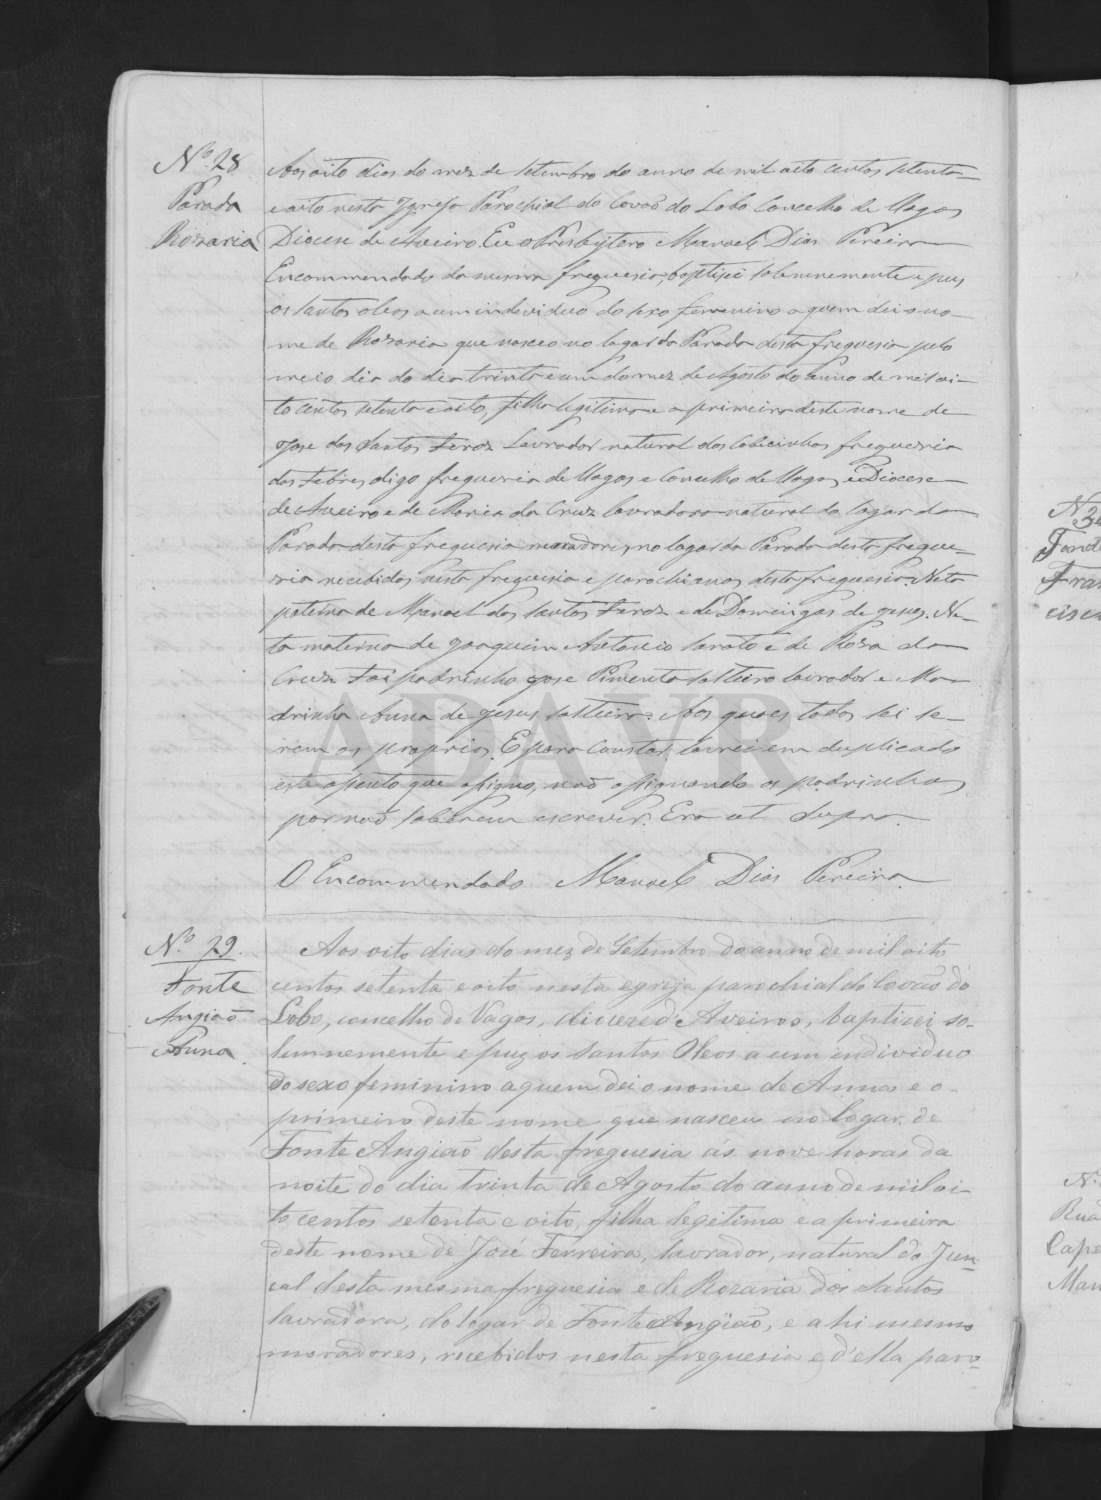 Nº 28
Parada
Rozaria
Aos oito dias do mez de Setembro do anno de mil oito centos setenta
e oito nesta Igreja Parochial do Covão do Lobo Concelho de Vagos
Diocese de Aveiro. Eu o Presbytero Manoel Dias Pereira
Encommendado da mesma freguesia, baptisei solemnemente e puz
os santos oleos a um individuo do sexo femenino a quem dei o no-
me de Rozaria que nasceo no logar da Parada desta freguesia pelo
meio dia do dia trinta e um do mez de Agosto do anno de mil oi-
to centos setenta e oito, filha legitima e a primeira deste nome de
Jose dos Santos Feroz Lavrador natural dos freguezia
das Febres, digo freguezia de Vagos e Concelho de Vagos, e Diocese
de Aveiro e de Maria da Cruz lavradora natural do logar da
Parada desta freguesia moradores, no logar da Parada desta fregue-
zia recebidos nesta freguesia e parochianos desta freguesia Neta
paterna de Manoel dos Santos Feroz e de Domingas de Jesus. Ne-
ta materna de Joaquim Antonio e de Roza da
Cruz Foi padrinho Jose Pimenta solteiro lavrador e Ma-
drinha Anna de Jesus solteira. Aos quaes todos sei se-
rem os proprios. E para constar, lavrei em duplicado
este assento que assigno, não assignando os padrinhos
por não saberem escrever. Era ut supra.
O Encommendado Manoel Dias Pereira
ADAVR
Nº 29.
Fonte
Angião
Anna
Aos oito dias do mez de Setembro do anno de mil oito
centos setenta e oito nesta egreja parochial do Covão do
Lobo, concelho de Vagos, diocese d'Aveiro, baptizei so-
lemnemente e puz os Santos Oleos a um individuo
do sexo feminino a quem dei o nome de Anna e o
primeiro deste nome que nasceu no logar de
Fonte Angião desta freguesia ás nove horas da
noite do dia trinta de Agosto do anno de mil oi-
to centos setenta e oito, filha legitima e a primeira
deste nome de José Ferreira, lavrador, natural do Jun-
cal desta mesma freguesia e de Rozaria dos Santos
lavradora, do logar de Fonte Angião, e ahi mesmo
moradores, recebidos nesta freguesia e d'ella paro-
Fran